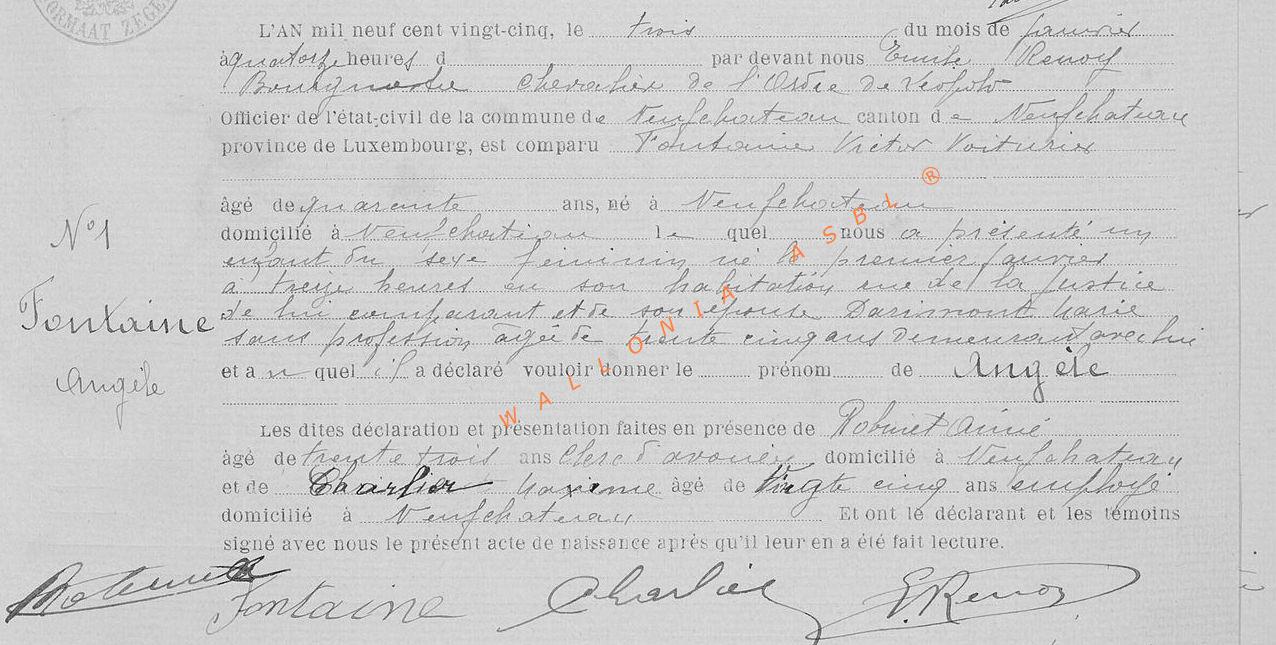 FORMAAT ZEGEL
L'AN mil neuf cent vingt-cinq, le trois du mois de Janvier
à quatorze heures d par devant nous Emile Renoy
Bourgmestre Chevalier de l'Ordre de Léopold
Officier de l'état-civil de la commune de Neufchateau canton de Neufchateau
province de Luxembourg, est comparu Fontaine Victor Voiturier
âgé de quarante ans, né à Neufchateau
domicilié à Neufchateau le quel nous a présenté un
enfant du sexe féminin né le premier Janvier
à treize heures en son habitation rue de la Justice
de lui comparant et de son épouse Darimont Marie
sans profession âgée de trente cinq ans demeurant avec lui
et au quel il a déclaré vouloir donner le prénom de Angèle
Les dites déclaration et présentation faites en présence de Robinet Aimé
âgé de trente trois ans Clerc d'avoué domicilié à Neufchateau
et de Charlier Maxime âgé de Vingt cinq ans employé
domicilié à Neufchateau Et ont le déclarant et les témoins
signé avec nous le présent acte de naissance après qu'il leur en a été fait lecture.
Fontaine Charlier E. Renoy
N° 1
Fontaine
Angèle
WALLONIA ASBL ®